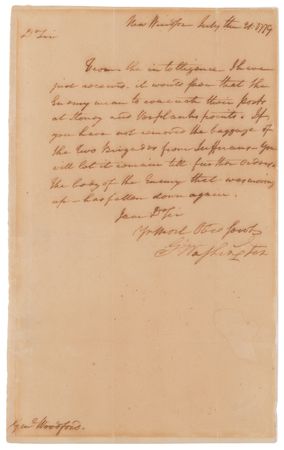 New Windsor July the 20. 1779
Dr Sir
From the intelligence I have
just received, it would seem that the
Enemy mean to evacuate their posts
at Stoney and Verplanks points. If
you have not removed the baggage of
the two Brigades from Sufferans - You
will let it remain till further orders.
The body of the Enemy that was moving
up - has fallen down again.
I am Dr Sir
Yr Most Obed Servt
G Washington
Genl Woodford.